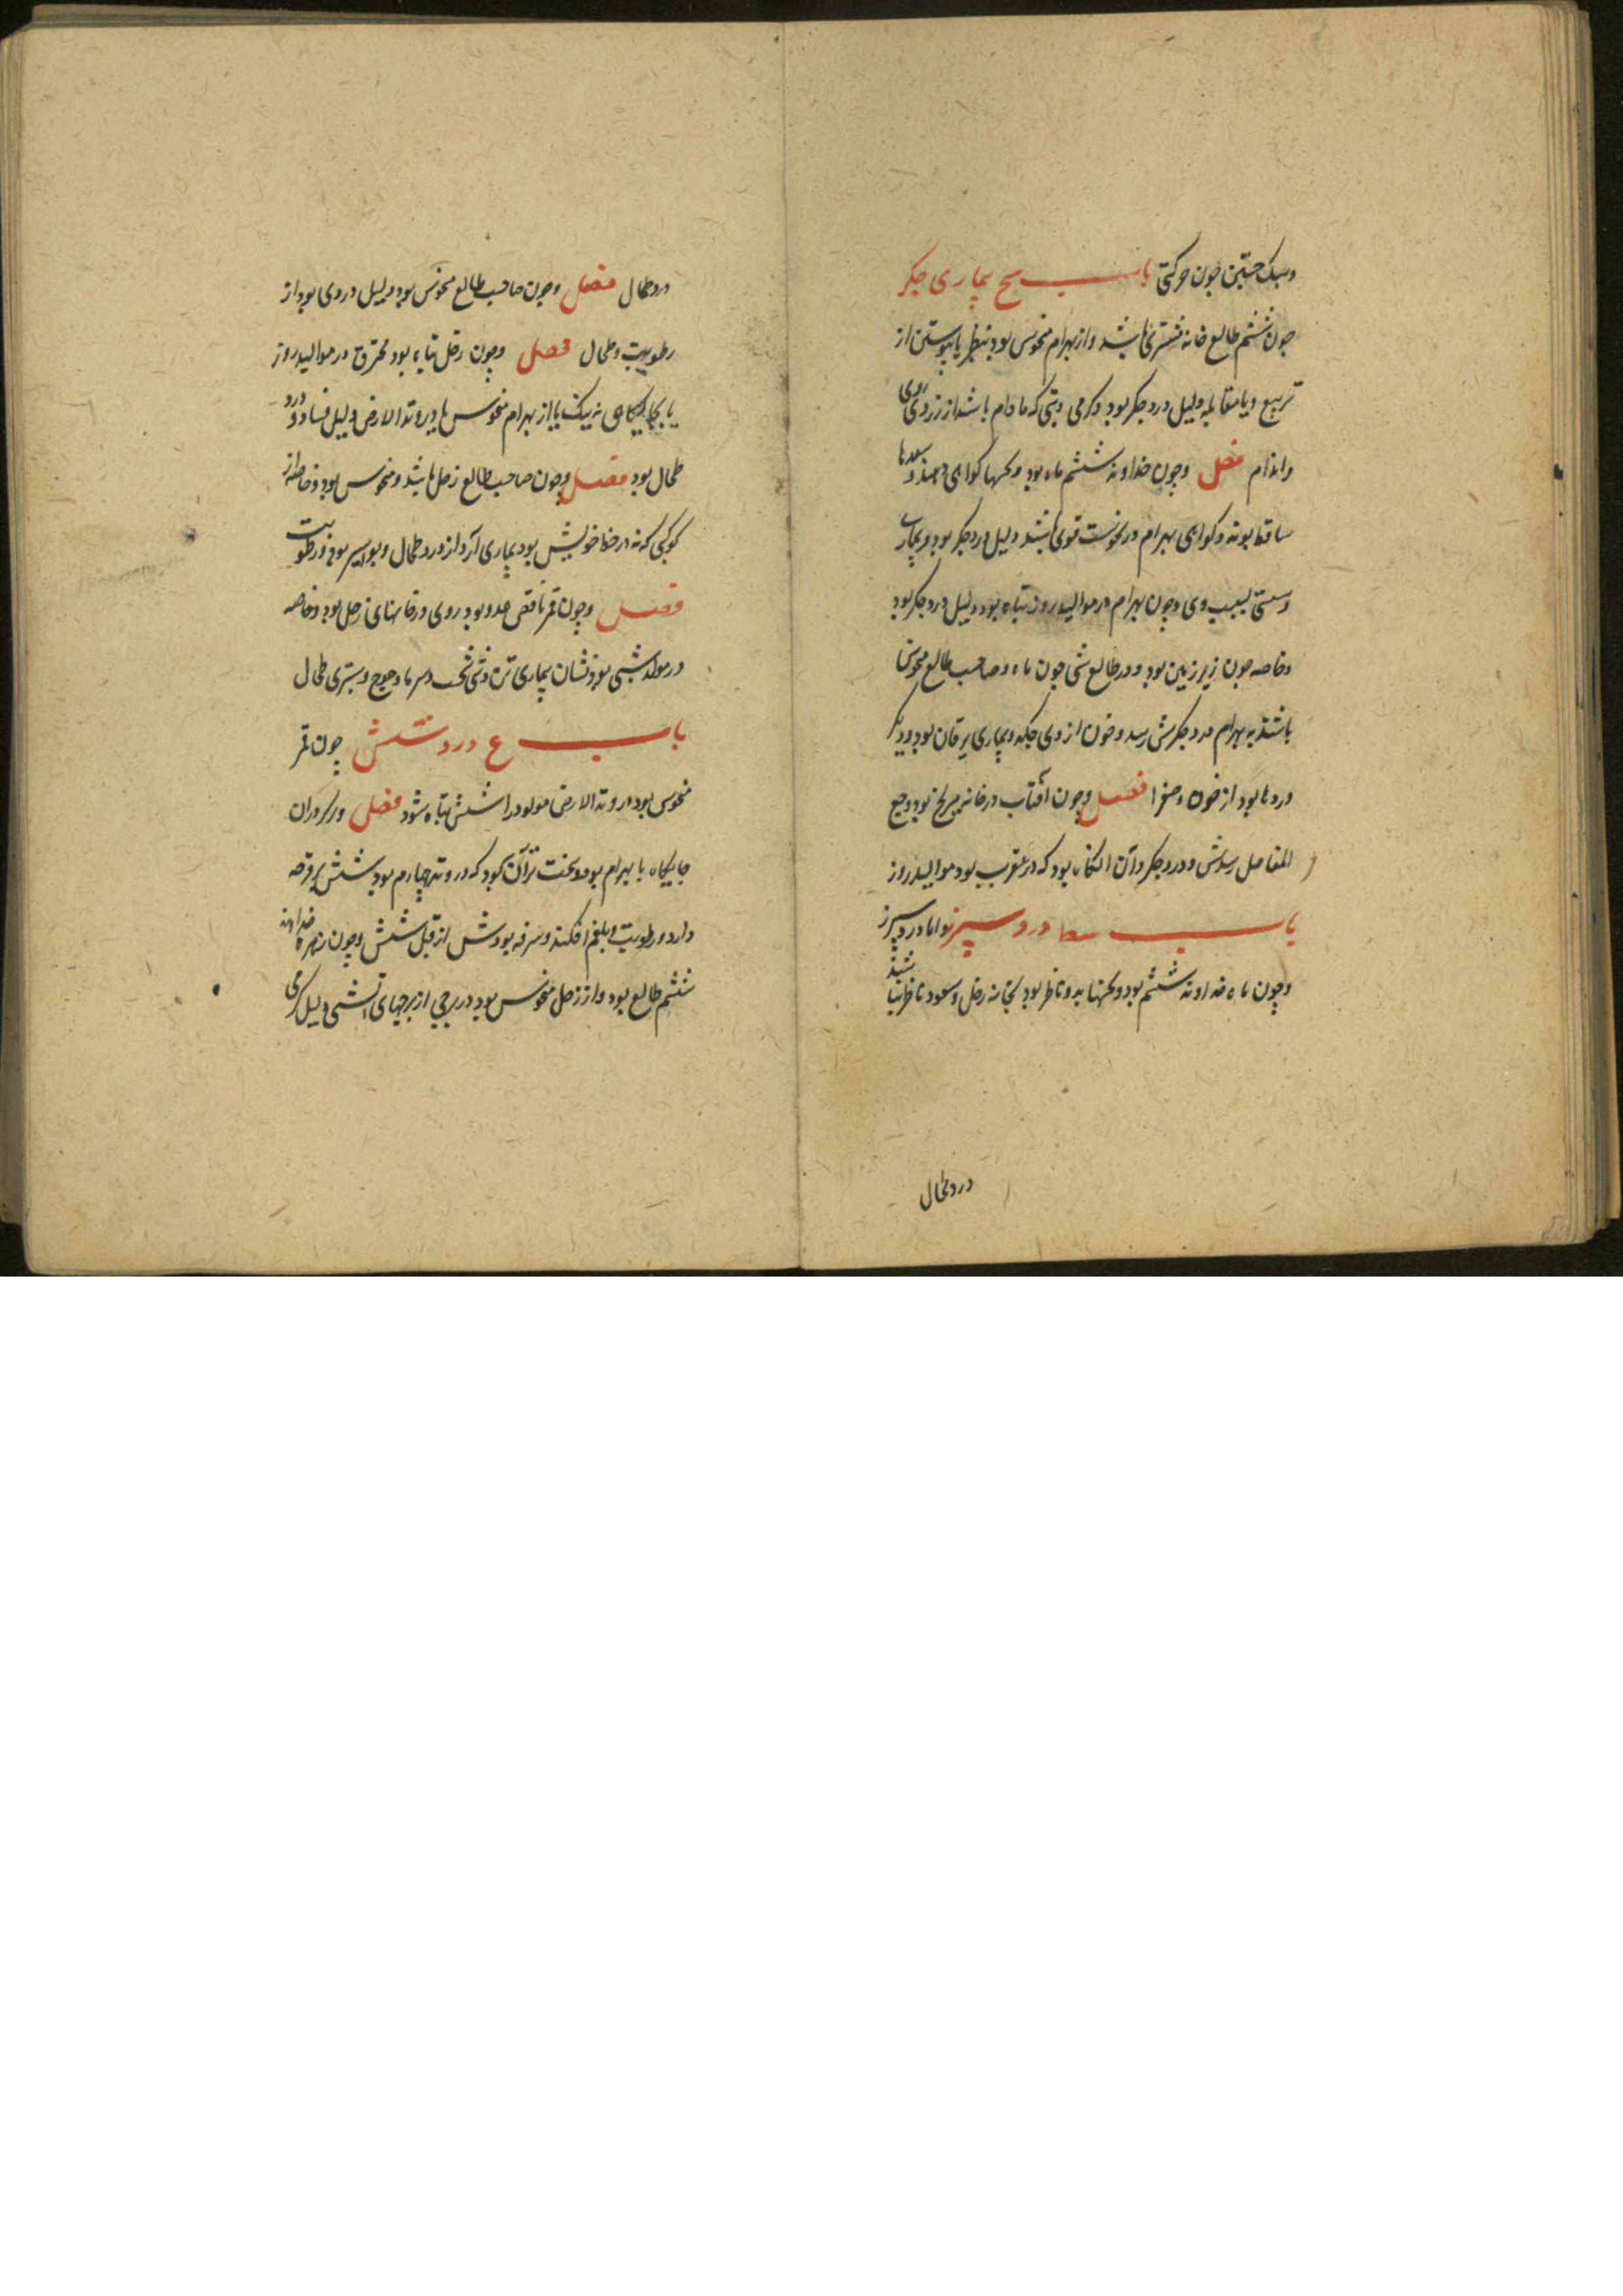 وسبک جستن چون حرکتی باب سح بیماری جکر
چون ششم طالع خانه مشتری باشد واز بهرام منحوس بود بنظر یا پیوستن از
تربیع ویا مقابله دلیل درد جکر بود وکرمی وتبی که مادام باشد از زردی روی
واندام فصل وچون خداوند ششم ماه بود وکهنها کواهی دهند وسعدها
ساقط بوند وکواهی بهرام در نحوست قوی باشد دلیل درد جکر بود وبیماری
وسستی بسبب وی وچون بهرام در موالید روز تباه بود دلیل درد جکر بود
وخاصه چون زیر زمین بود ودر طالع شبی چون ماه وصاحب طالع منحوس
باشند به بهرام درد جکرش رسد وخون از وی چکد وبیماری یرقان بود ودیکر
دردها بود از خون وصفرا فصل وچون آفتاب در خانه مریخ بود وجع
المفاصل رسدش ودرد جکر وآن انکاه بود که در عقرب بود موالید روز
باب سط درد سپرز واما درد سپرز
وچون ماه خداوند ششم بود وکهنها بدو ناظر بود بخانه زحل وسعود ناظر نباشند
درد طحال
درد طحال فصل وچون صاحب طالع منحوس بود دلیل دردی بود از
رطوبت وطحال فصل وچون زحل تباه بود محترق در موالید روز
یا بجایکاهی نه نیک یا از بهرام منحوس یا در وتد الارض دلیل فساد ودرد
طحال بود فصل وچون صاحب طالع زحل باشد ومنحوس بود وخاصه از
کوکبی که نه در حظ خویش بود بیماری آرد از درد طحال وبواسیر بود ورطوبت
فصل وچون قمر ناقص عدد بود روی در خانهای زحل بود وخاصه
در موالید شبی بود نشان بیماری تن وشی سخت وسرما وجوع وستبری طحال
باب ع درد شش چون قمر
منحوس بود در وتد الارض مولود را شش تباه شود فصل ور کردران
جایکاه با بهرام بود وسخت تر آن بود که در وتد چهارم بود شش پر قرحه
دارد ورطوبت وبلغم افکند وسرفه بودش از قبل شش وچون زهره خداوند
ششم طالع بود واز زحل منحوس بود در برجی از برجهای آتشی دلیل کرمی